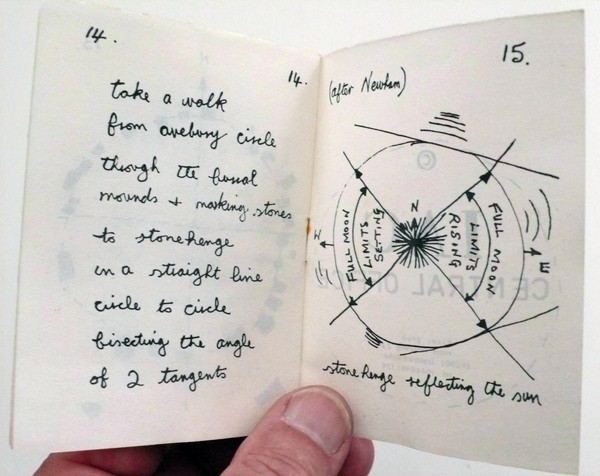 14.
take a walk
from avebury circle
through the burial
mounds + marking stones
to stonehenge
in a straight line
circle to circle
bisecting the angle
of 2 tangents
14.
15.
(after Newham)
N
W
E
FULL MOON
LIMITS
SETTING
RISING
LIMITS
FULL MOON
CENTRAL OFFICE
stonehenge reflecting the sun